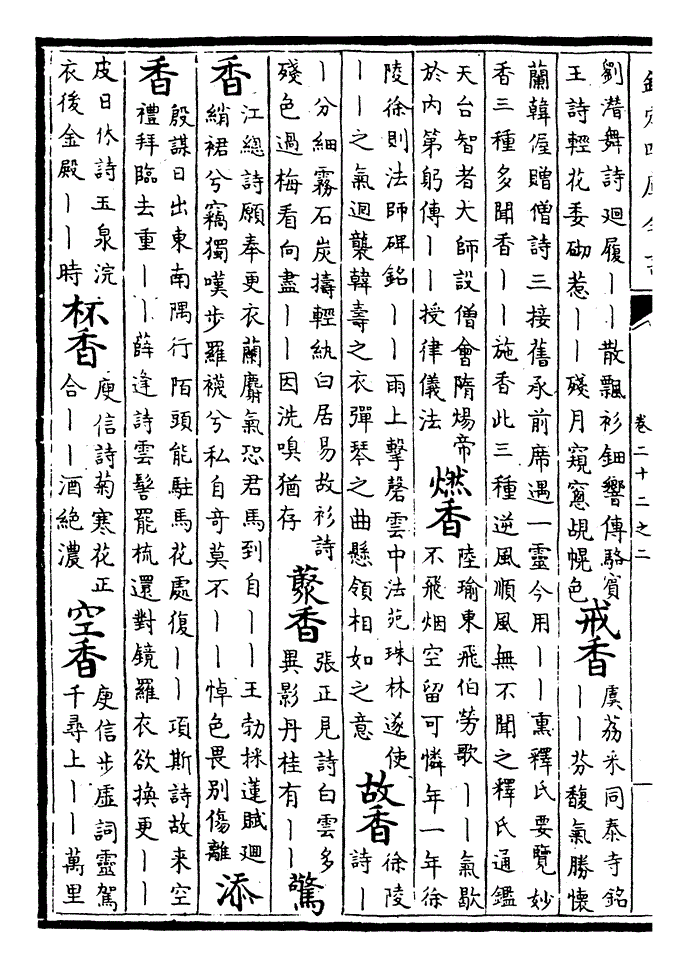 欽定四庫全書
卷二十二之二
劉潛舞詩廻履｜｜散飄衫鈿響傳駱賓
王詩輕花委砌惹｜｜殘月窺窻覘幌色
戒香
虞荔釆同泰寺銘
｜｜芬馥氣勝懷
蘭韓偓贈僧詩三接舊承前席遇一靈今用｜｜熏釋氏要覽妙
香三種多聞香｜｜施香此三種逆風順風無不聞之釋氏通鑑
天台智者大師設僧會隋煬帝
於内第躬傳｜｜授律儀法
燃香
陸瑜東飛伯勞歌｜｜氣歇
不飛烟空留可憐年一年徐
陵徐則法師碑銘｜｜雨上擊磬雲中法苑珠林遂使
｜｜之氣迴襲韓壽之衣彈琴之曲懸領相如之意
故香
徐陵
詩｜
｜分細霧石炭擣輕紈白居易故衫詩
殘色過梅看向盡｜｜因洗嗅猶存
藂香
張正見詩白雲多
異影丹桂有｜｜
驚
香
江總詩願奉更衣蘭麝氣恐君馬到自｜｜王勃採蓮賦廻
綃裙兮竊獨嘆步羅襪兮私自奇莫不｜｜悼色畏別傷離
添
香
殷謀日出東南隅行陌頭能駐馬花處復｜｜項斯詩故来空
禮拜臨去重｜｜薛逢詩雲髻罷梳還對鏡羅衣欲換更｜｜
皮日休詩玉泉浣
衣後金殿｜｜時
杯香
庾信詩菊寒花正
合｜｜酒絶濃
空香
庾信步虛詞靈駕
千尋上｜｜萬里